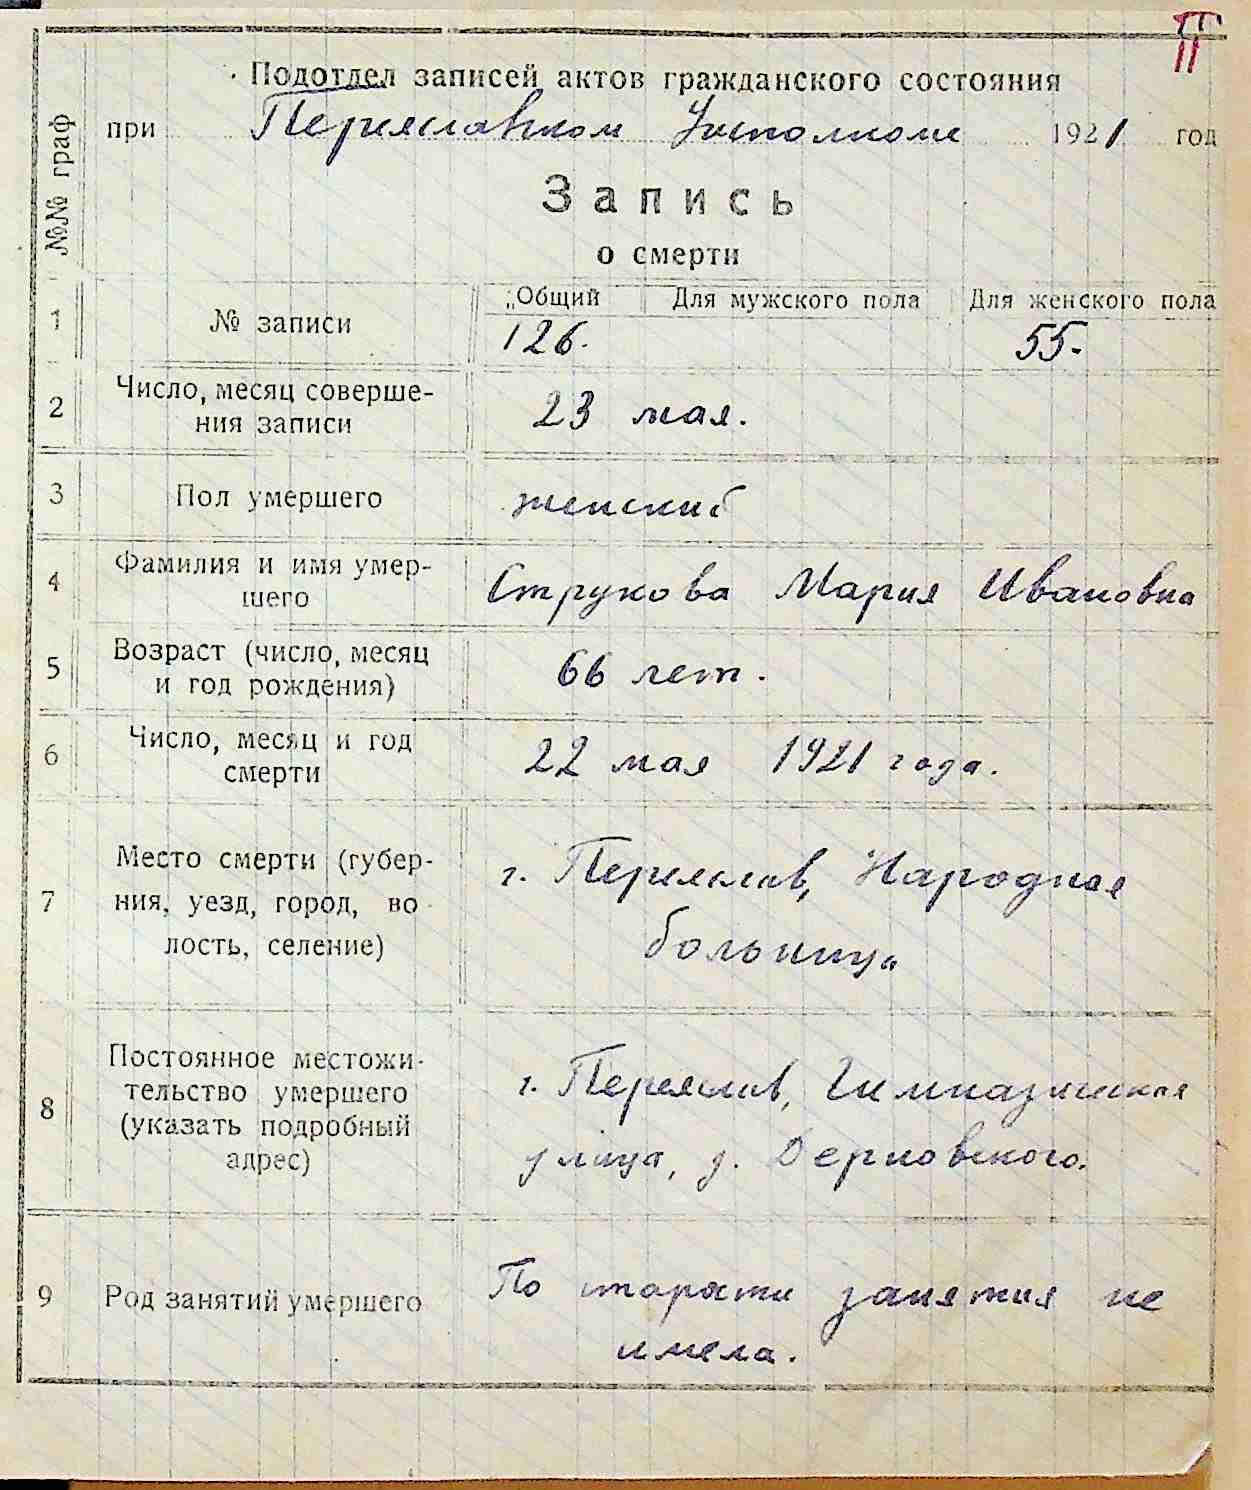 II
Подотдел записей актов гражданского состояния
при Переяславском Уисполкоме 1921 год
№№ граф
Запись
о смерти
1 № записи Общий Для мужского пола Для женского пола
126. 55.
2 Число, месяц соверше-
ния записи
23 мая.
3 Пол умершего женский
4 Фамилия и имя умер-
шего
Струкова Мария Ивановна
5 Возраст (число, месяц
и год рождения)
66 лет.
6 Число, месяц и год
смерти
22 мая 1921 года.
7 Место смерти (губер-
ния, уезд, город, во
лость, селение)
г. Переяслав, Народная
больница
8 Постоянное местожи-
тельство умершего
(указать подробный
адрес)
г. Переяслав, Гимназическая
улица, д. Дерновского.
9 Род занятий умершего
По старости занятия не
имела.